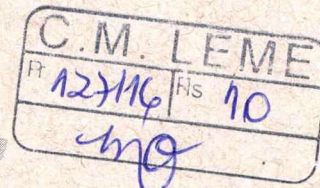 C.M. LEME
Pr 127/16 Fls 10